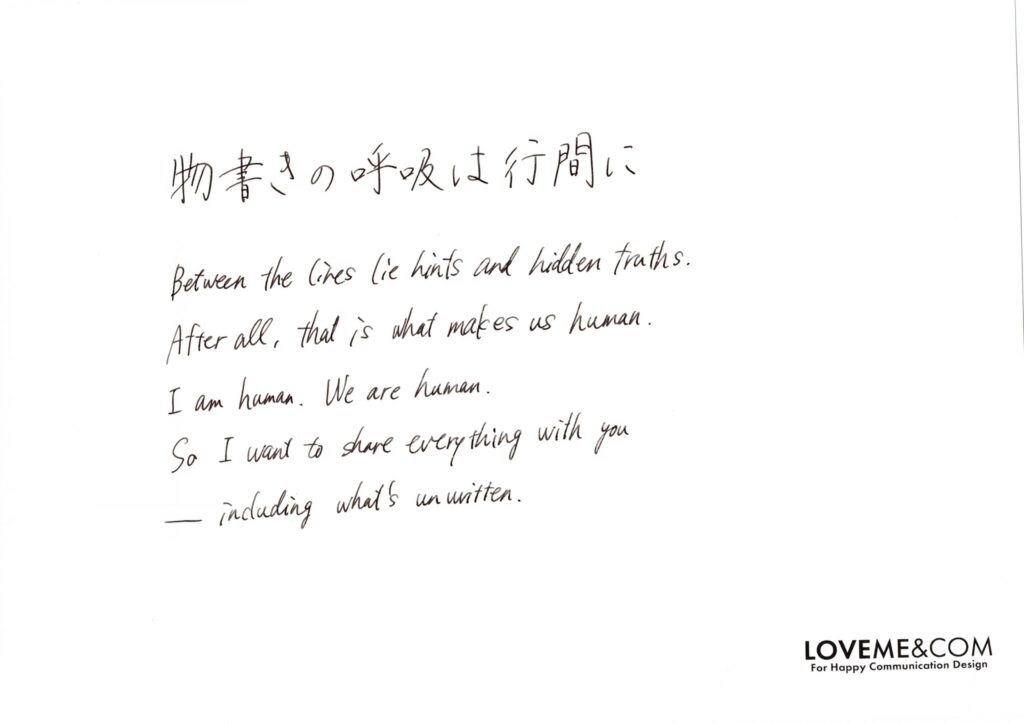 物書きの呼吸は行間に
Between the lines lie hints and hidden truths.
After all, that is what makes us human.
I am human. We are human.
So I want to share everything with you
— including what's unwritten.
LOVEME&COM
For Happy Communication Design